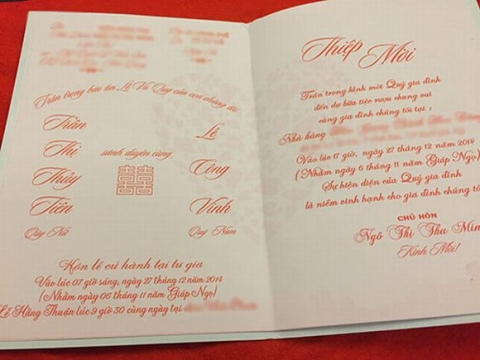 Trân trọng báo tin Lễ Vu Quy của con chúng tôi
Trần
Thị
Thủy
Tiên
Quý Nữ
sánh duyên cùng
Lê
Công
Vinh
Quý Nam
Hôn lễ cử hành tại tư gia
Vào lúc 07 giờ sáng, ngày 27 tháng 12 năm 2014
(Nhằm ngày 06 tháng 11 năm Giáp Ngọ)
Lễ Hằng Thuận lúc 9 giờ 30 cùng ngày tại
Thiệp Mời
Trân trọng kính mời Quý gia đình
đến dự bữa tiệc rượu chung vui
cùng gia đình chúng tôi tại :
Nhà hàng
Vào lúc 17 giờ, ngày 27 tháng 12 năm 2014
(Nhằm ngày 6 tháng 11 năm Giáp Ngọ)
Sự hiện diện của Quý gia đình
là niềm vinh hạnh cho gia đình chúng tôi
CHỦ HÔN
Ngô Thị Thu Min
Kính Mời!